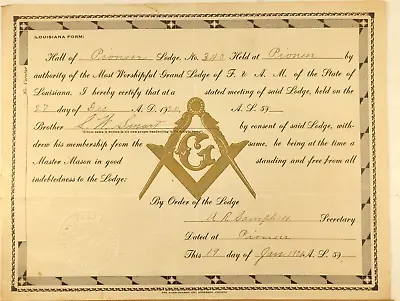 (LOUISIANA FORM)
Hall of Pioneer Lodge, No. 340 Held at Pioneer by
authority of the Most Worshipful Grand Lodge of F. & A. M. of the State of
Louisiana. I hereby certify that at a stated meeting of said Lodge, held on the
27 day of Dec A. D. 192 A. L. 59
Brother S. W. Smart by consent of said Lodge, with-
drew his membership from the same, he being at the time a
Master Mason in good standing and free from all
indebtedness to the Lodge:
By Order of the Lodge
Secretary
Dated at Pioneer
This 19 day of Jan 192 A. L. 59
G